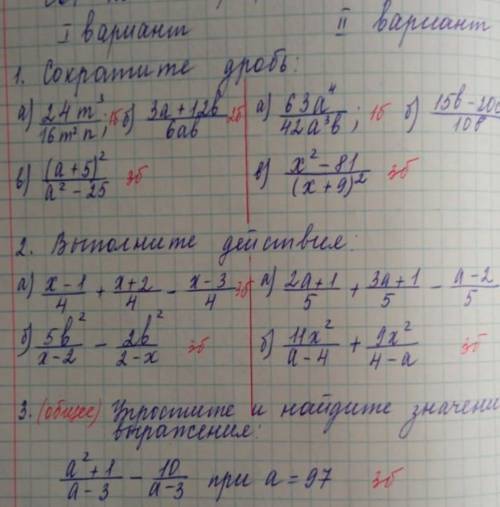 I вариант II вариант
1. Сократите дробь:
а) 24m³/16m²n; 1б б) 3a+12b/6ab 2б а) 63a⁴/42a³b; 1б б) 15b-20c/10b
в) (a+5)²/a²-25 3б в) x²-81/(x+9)² 3б
2. Выполните действия:
а) x-1/4 + x+2/4 - x-3/4 3б а) 2a+1/5 + 3a+1/5 - a-2/5
б) 5b²/x-2 - 2b²/2-x 3б б) 11x²/a-4 + 9x²/4-a 3б
3. (общее) Упростите и найдите значени
выражения:
a²+1/a-3 - 10/a-3 при a = 97 3б